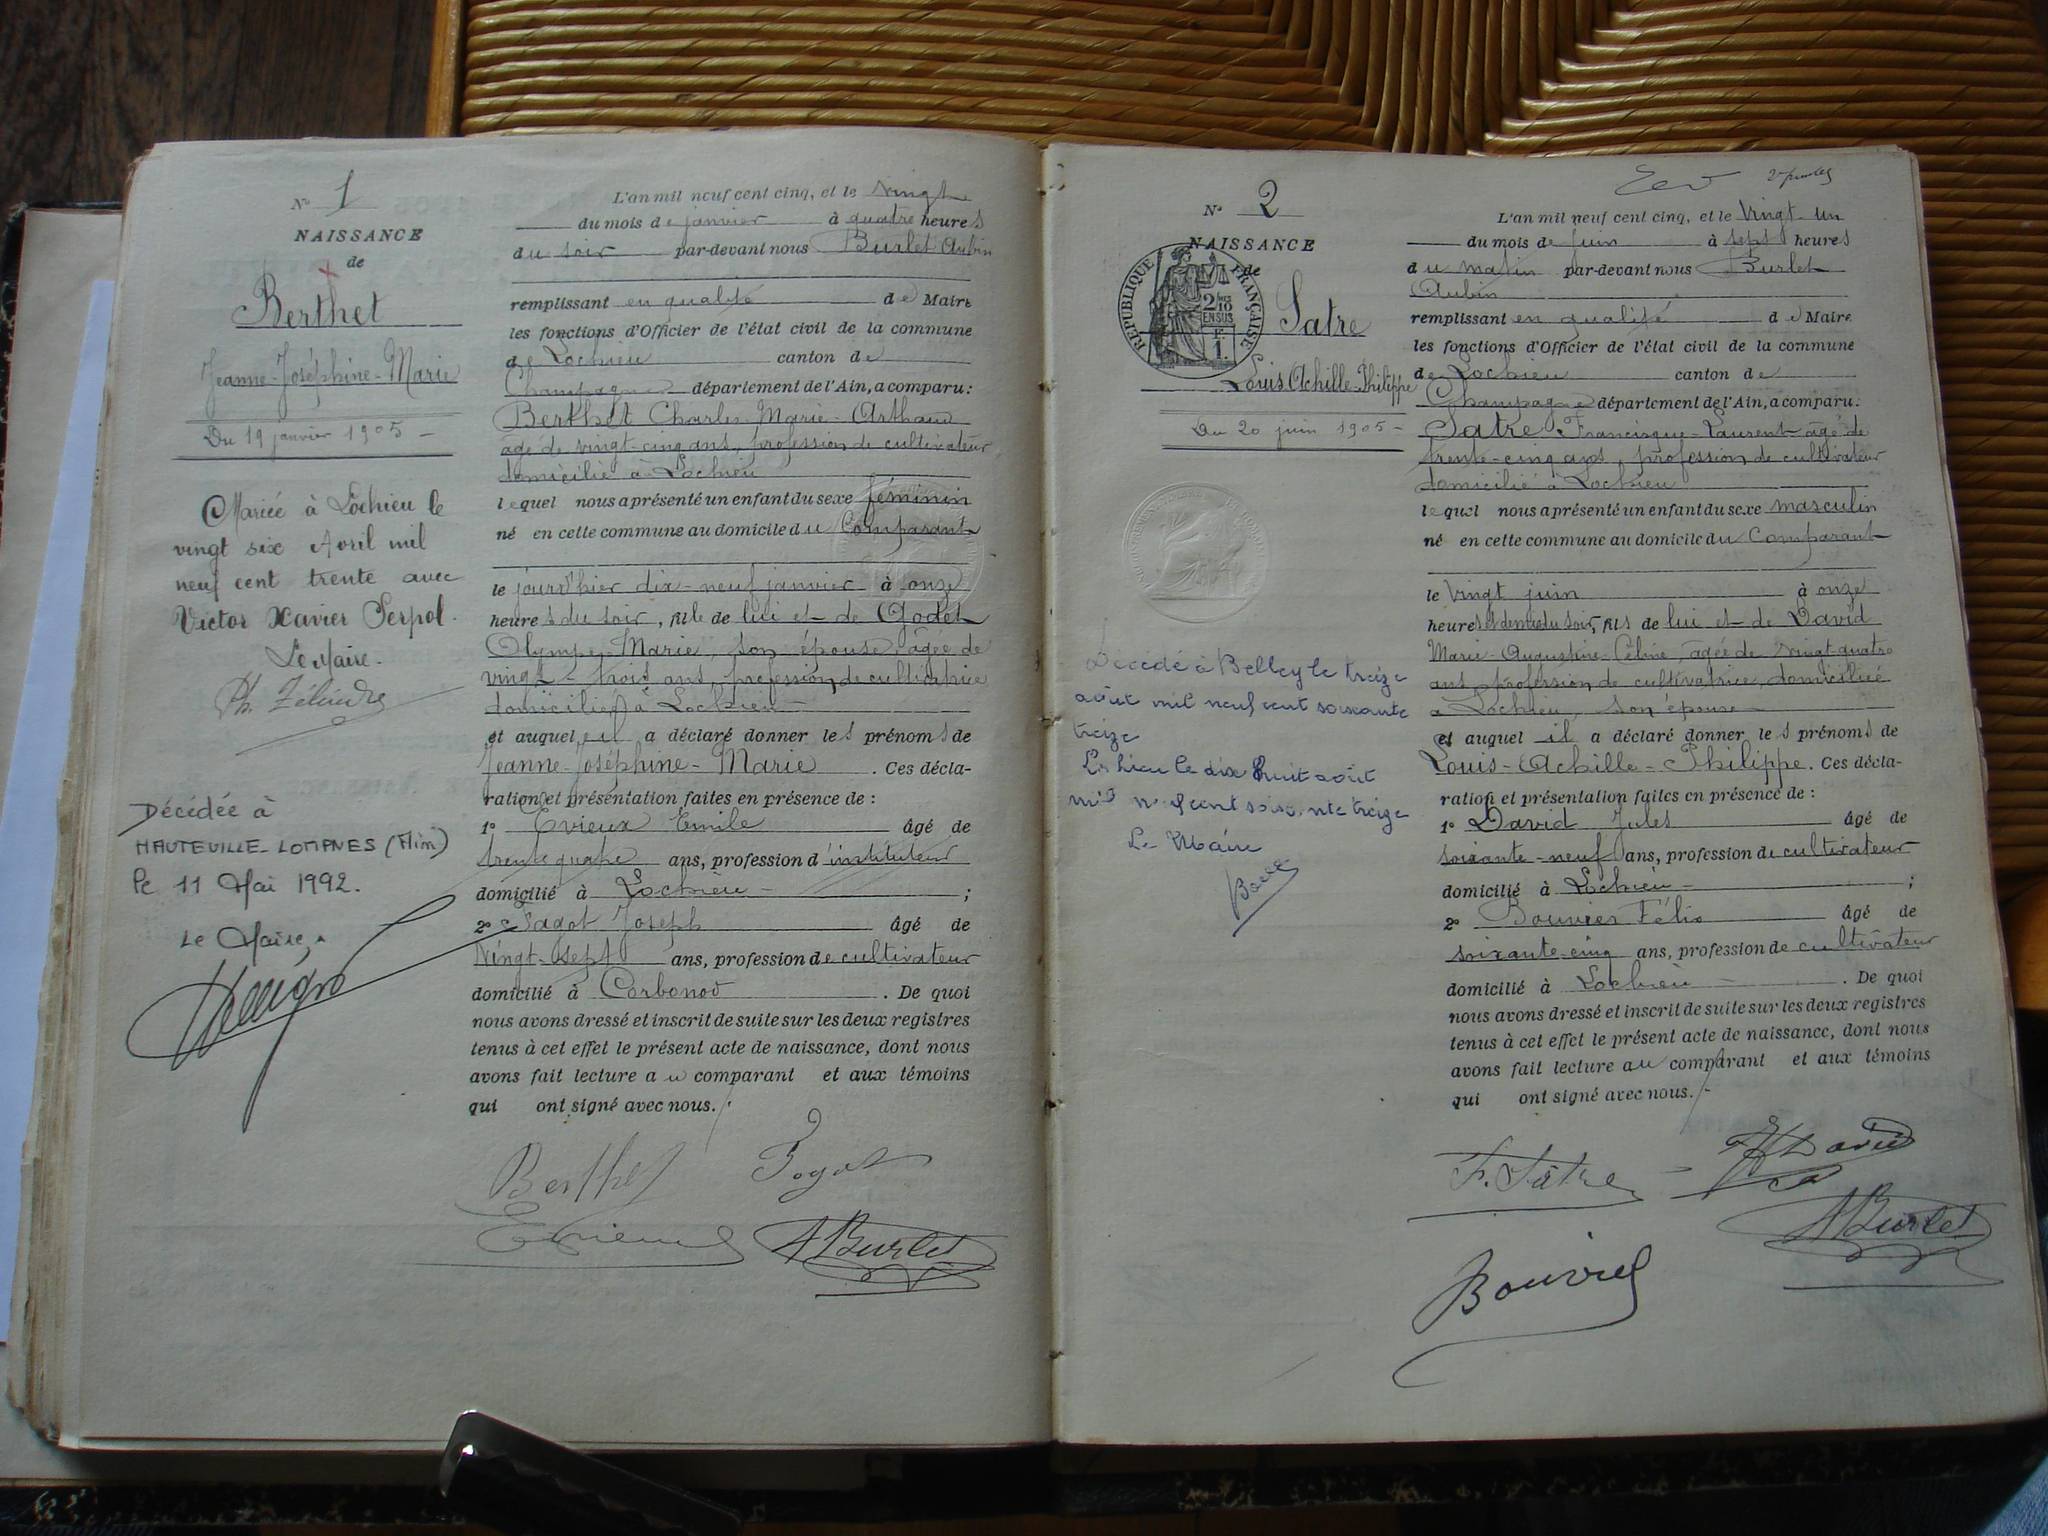 N° 1
NAISSANCE
de
Berthet
Jeanne-Joséphine-Marie
Du 19 janvier 1905 -
Mariée à Lochieu le
vingt six Avril mil
neuf cent trente avec
Victor Xavier Serpol.
Le Maire.
Décédée à
HAUTEVILLE-LOMPNES (Ain)
le 11 Mai 1992.
Le Maire,
L'an mil neuf cent cinq, et le vingt
du mois de janvier à quatre heures
du soir par-devant nous Burlet Aubin
remplissant en qualité de Maire
les fonctions d'Officier de l'état civil de la commune
de Lochieu canton de
Champagne département de l'Ain, a comparu:
Berthet Charles-Marie-Arthaud
âgé de vingt-cinq ans, profession de cultivateur
domicilié à Lochieu
lequel nous a présenté un enfant du sexe féminin
né en cette commune au domicile du Comparant
le jourd'hier dix-neuf janvier à onze
heures du soir, fille de lui et de Godet
Olympe-Marie, son épouse, âgée de
vingt-trois ans, profession de cultivatrice
domiciliée à Lochieu -
et auquel il a déclaré donner les prénoms de
Jeanne-Joséphine-Marie. Ces décla-
ration et présentation faites en présence de :
1° Evieux Emile âgé de
trente quatre ans, profession d'instituteur
domicilié à Lochieu - ;
2° Joseph âgé de
Vingt-sept ans, profession de cultivateur
domicilié à Corbonod. De quoi
nous avons dressé et inscrit de suite sur les deux registres
tenus à cet effet le présent acte de naissance, dont nous
avons fait lecture au comparant et aux témoins
qui ont signé avec nous.
Berthet
Evieux ABurlet
N° 2
NAISSANCE
de
RÉPUBLIQUE FRANÇAISE
2/10
EN SUS
1.
Satre
Louis Achille-Philippe
Du 20 juin 1905 -
Décédé à Belley le treize
août mil neuf cent soixante
treize
Lochieu le dix huit août
mil neuf cent soixante treize
Le Maire
L'an mil neuf cent cinq, et le Vingt-un
du mois de juin à sept heures
du matin par-devant nous Burlet
Aubin
remplissant en qualité de Maire
les fonctions d'Officier de l'état civil de la commune
de Lochieu canton de
Champagne département de l'Ain, a comparu:
Satre Francisque-Laurent âgé de
trente-cinq ans, profession de cultivateur
domicilié à Lochieu
lequel nous a présenté un enfant du sexe masculin
né en cette commune au domicile du Comparant
le vingt juin à onze
heures et demie du soir, fils de lui et de David
Marie-Augustine-Céline, âgée de vingt-quatre
ans, profession de cultivatrice, domiciliée
à Lochieu, son épouse -
et auquel il a déclaré donner les prénoms de
Louis-Achille-Philippe. Ces décla-
ration et présentation faites en présence de :
1° David Jules âgé de
soixante-neuf ans, profession de cultivateur
domicilié à Lochieu - ;
2° Bouvier Félix âgé de
soixante-cinq ans, profession de cultivateur
domicilié à Lochieu - . De quoi
nous avons dressé et inscrit de suite sur les deux registres
tenus à cet effet le présent acte de naissance, dont nous
avons fait lecture au comparant et aux témoins
qui ont signé avec nous. -
F. Satre David
ABurlet
Bouvier